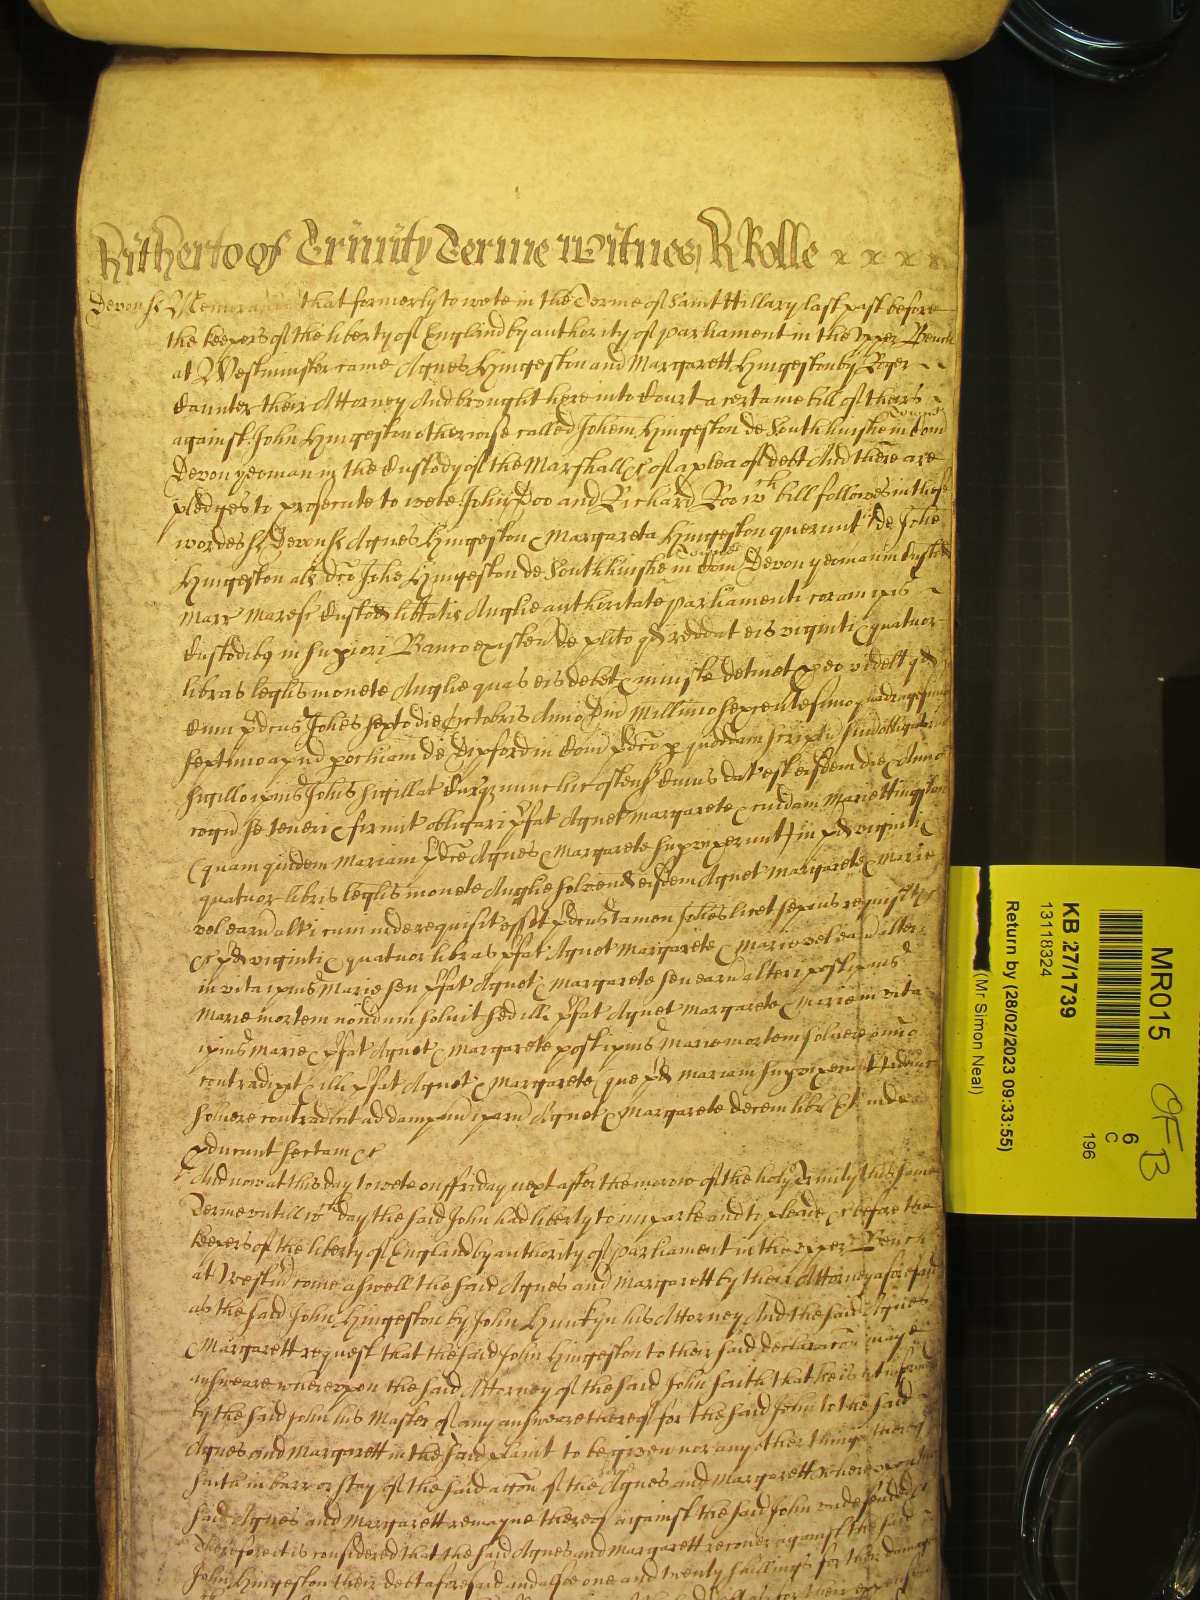 Hitherto of Trinity Terme Witnes H Rolle
Devon ss Memorand that formerly to wete in the Terme of Saint Hillary last past before
the keepers of the liberty of England by authority of parliament in the upper Bench
at Westminster came Agnes Hingeston and Margarett Hingeston by Roger
Saunter their Attorney And brought here into Court a certaine bill of theirs
against John Hingeston otherwise called Johem Hingeston de Southhuishe in Com
Devon yeoman in the Custody of the Marshall &c of a plea of debt And there are
pledges to prosecute to wete John Doo and Richard Roo wch bill followes in these
wordes ss Devon ss Agnes Hingeston & Margareta Hingeston querunt de Johe
Hingeston als dco Johe Hingeston de Southhuishe in Com Devon yeoman in Custod
Marr Maresc Custod libtatis Anglie authoritate parliamenti coram ipis
Custodibz in supiori Banco existen de plito qd reddat eis viginti & quatuor
libras leglis monete Anglie quas eis debet & iniuste detinet p eo videlt qd
cum pdcus Johes sexto die Octobris Anno Dni Millimo sexcentesimo quadragesimo
septimo apud pochiam de Dipford in Com pdco p quoddam scriptu suu obligator
sigillo ipius Johis sigillat Curqz nunc hic ostens Cuius dat est eisdem die & Anno
cogn se teneri & firmit obligari pfat Agnet Margarete & cuidam Marie Hingston
(quam quidem Mariam pdce Agnes & Margareta supvixerunt) in pd viginti &
quatuor libris leglis monete Anglie solvend eisdem Agnet Margarete & Marie
vel earu alti cum inde requisit esset pdcus tamen Johes licet sepius requisit
&c pd viginti & quatuor libras pfat Agnet Margarete & Marie vel earu alteri
in vita ipius Marie seu pfat Agnet & Margarete seu earu alteri post ipius
Marie mortem nondum solvit sed ill pfat Agnet Margarete & Marie in vita
ipius Marie & pfat Agnet & Margarete post ipius Marie mortem solvere omino
contradixit & ill pfat Agnet & Margarete (que pd Mariam supvixerunt) adhuc
solvere contradicit ad dampnu iparu Agnet & Margarete decem libr Et inde
pducunt sectam &c
And now at this day to wete on ffriday next after the morow of the holy Trinity this same
Terme untill wch day the said John had liberty to imparle and to pleade &c before the
keepers of the liberty of England by authority of parliament in the upper Bench
at Westm come aswell the said Agnes and Margarett by their Attorney aforesaid
as the said John Hingeston by John Hunkyn his Attorney And the said Agnes
& Margarett request that the said John Hingeston to their said declaracon may
answeare whereupon the said Attorney of the said John saith that he is not informed
by the said John his Master of any answeare thereof for the said John to the said
Agnes and Margarett in the said plaint to be given nor any other thinge thereof
saith in barr or stay of the said accon of the said Agnes and Margarett whereupon the
said Agnes and Margarett remayne thereof against the said John undefended
Therefore it is considered that the said Agnes and Margarett recover against the said
John Hingeston their debt aforesaid and alsoe one and twenty shillings for their damag
MR015
KB 27/1739
13118324
Return by (28/02/2023 09:33:55)
(Mr Simon Neal)
6
C
196
OFB